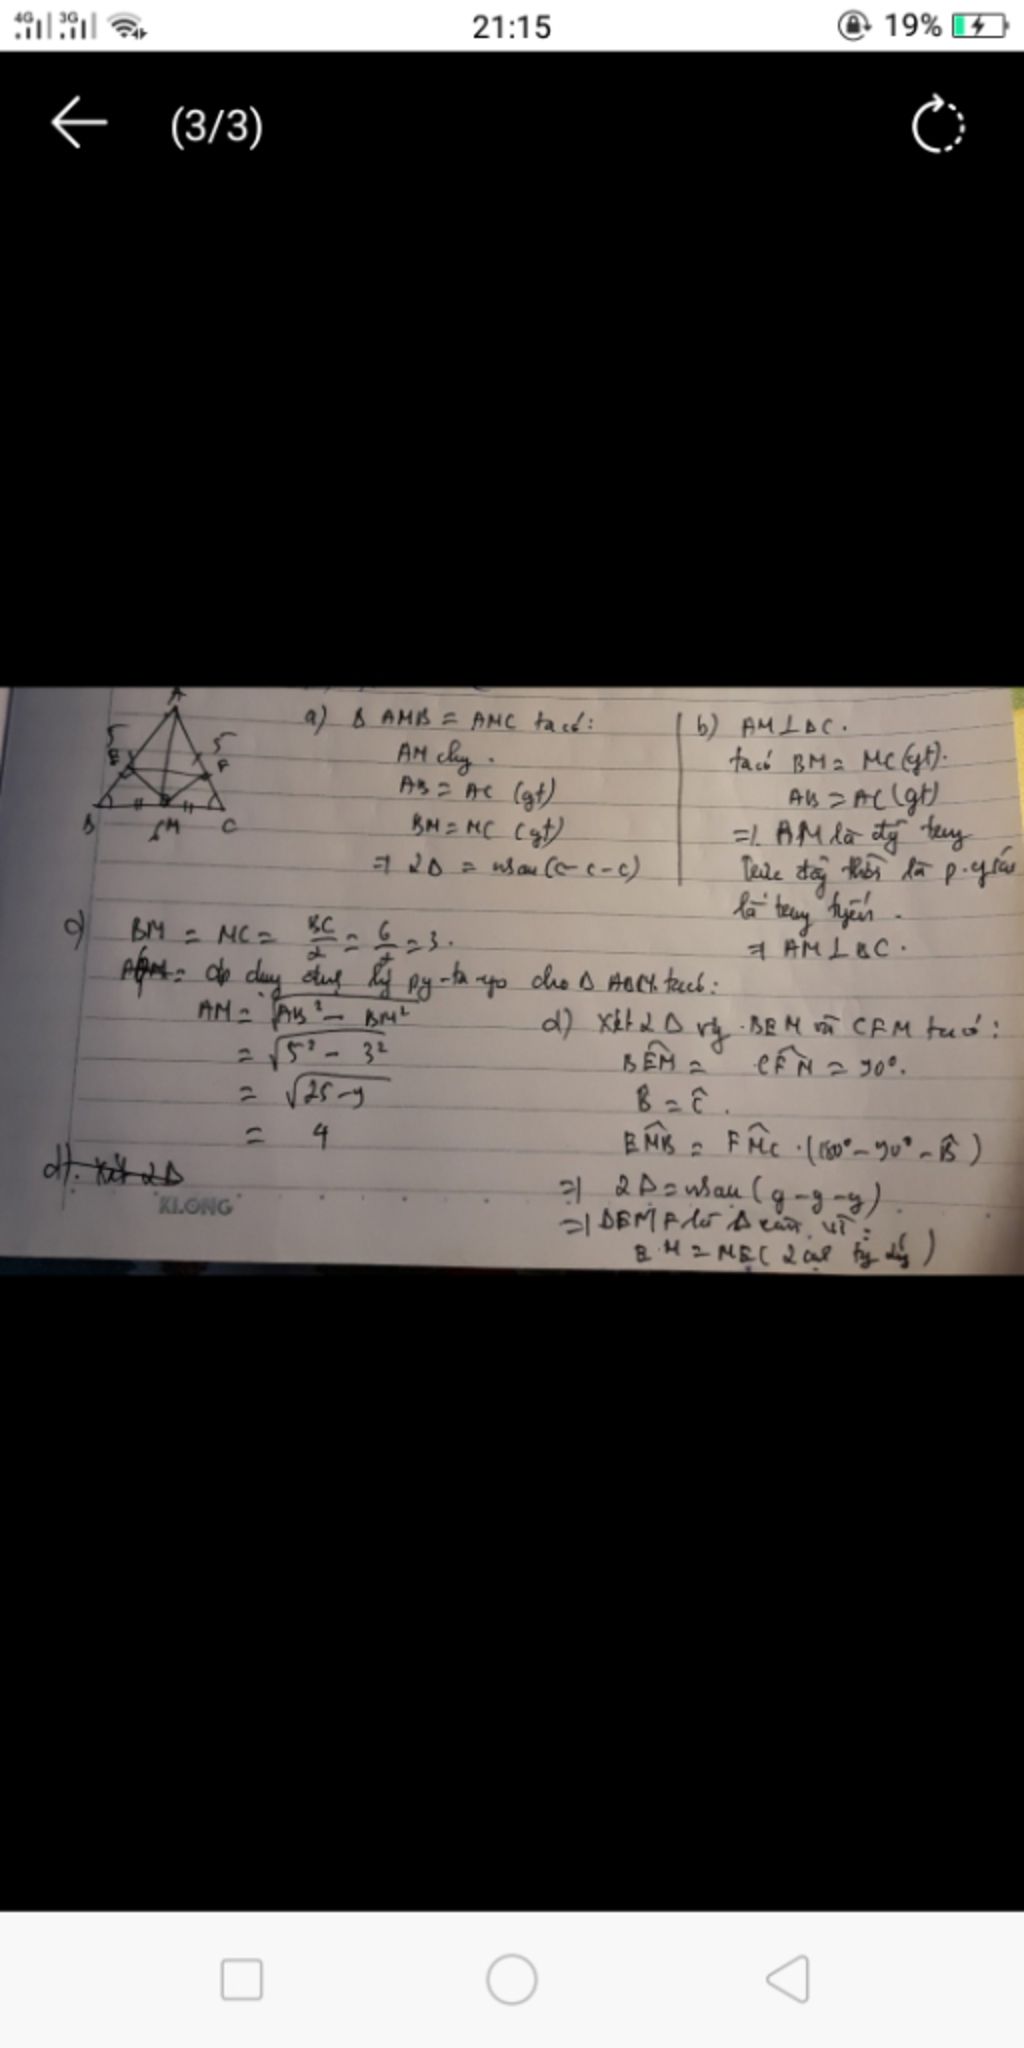 4G 3G 21:15 19%
(3/3)
A
5 5
E F
B 6 M C
a) Δ AMB = AMC ta có:
AM chg.
AB = AC (gt)
BM = MC (gt)
=> 2Δ = nhau (c-c-c)
b) AM⊥BC.
ta có BM = MC (gt).
AB = AC (gt)
=> AM là đg̃ trung
trực đồng thời là p.giác
là trung tuyến.
=> AM ⊥ BC.
c) BM = MC = BC/2 = 6/2 = 3.
áp dụng định lý py-ta-go cho Δ ABM ta có:
AM = √AB² - BM²
= √5² - 3²
= √25-9
= 4
d) Xét 2Δ
d) Xét 2Δ vg BEM và CFM ta có:
BÊM = CF̂M = 90°.
B = Ĉ.
EM̂B = FM̂C (180° - 90° - B̂)
=> 2Δ = nhau (g-g-g)
=> ΔEMF là Δ cân vì:
EM = MF (2 cạnh tg ứg)
KLONG